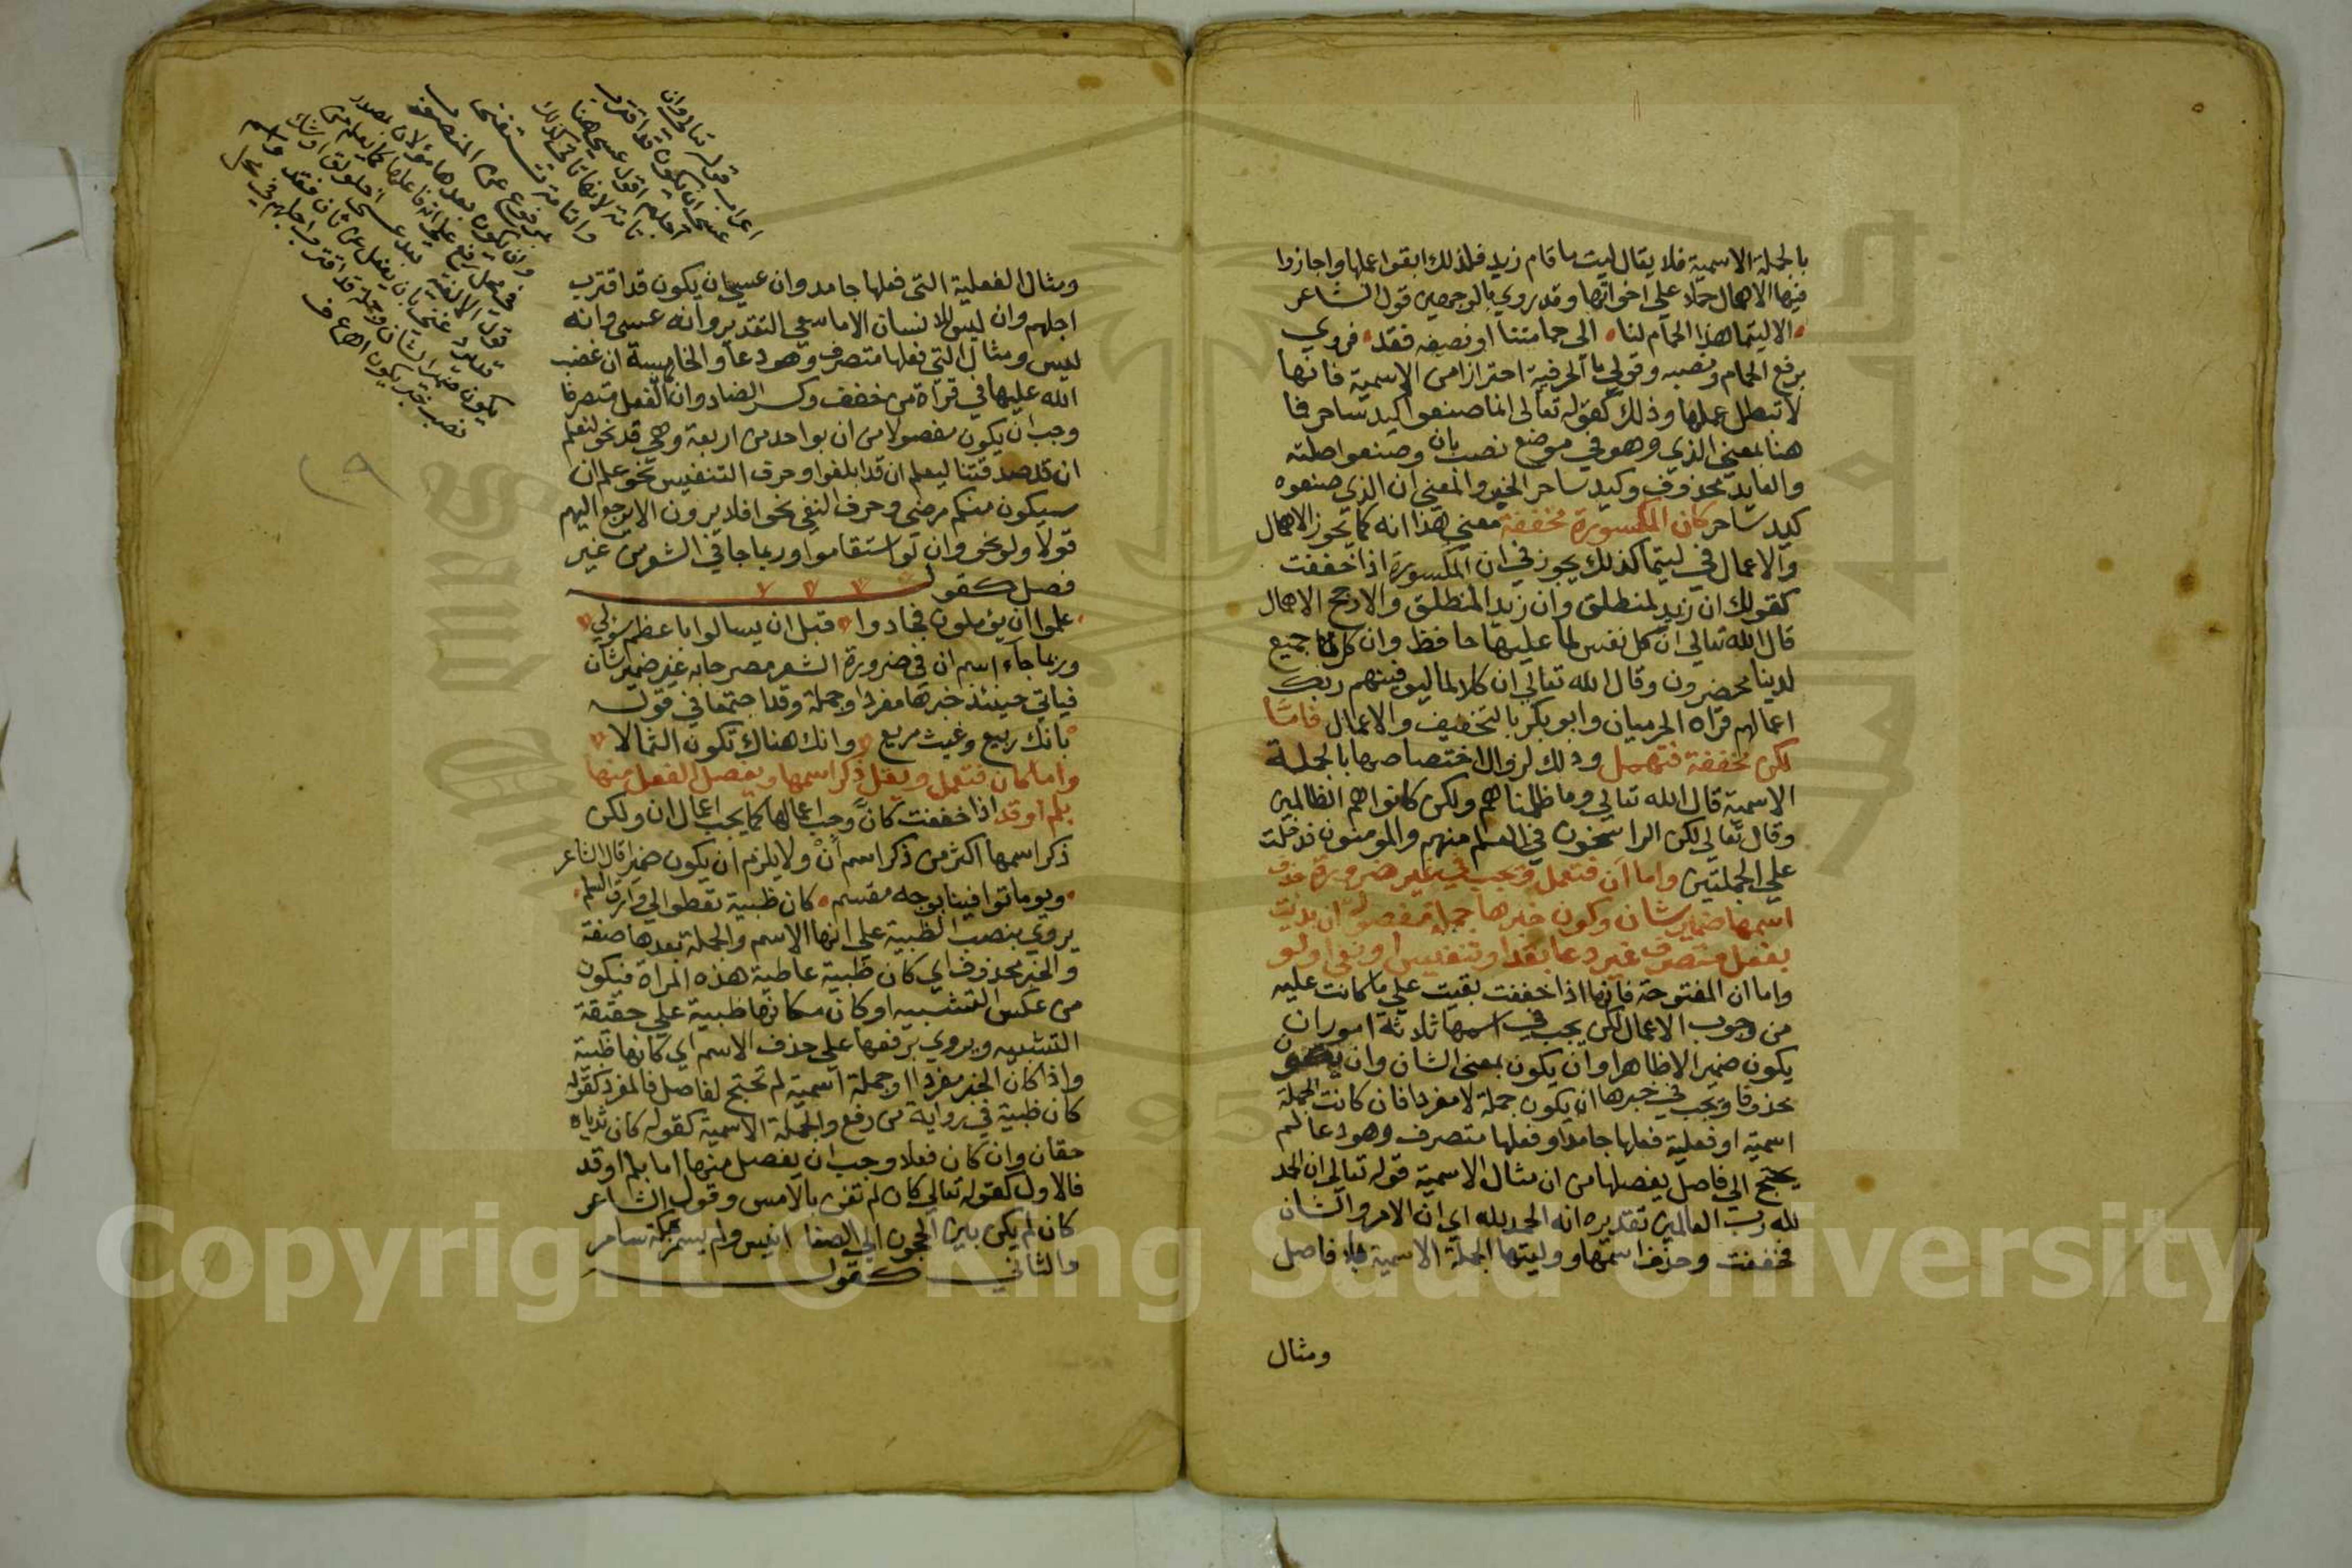 بالجملة الاسمية فلا يقال ليت ما قام زيد فلذلك ابقوا عملها واجازوا
فيها الاهمال حملا علي اخواتها وقد روي بالوجهين قول الشاعر
الا ليتما هذا الحمام لنا الى حمامتنا او نصيفه فقد فروي
برفع الحمام ونصبه وقولي ما الحرفية احترازا من الاسمية فانها
لا تبطل عملها وذلك كقوله تعالى انما صنعوا كيد ساحر فما
هنا بمعني الذي وهو في موضع نصب بان وصنعوا صلته
والعايد محذوف وكيد ساحر الخبر والمعني ان الذي صنعوه
كيد ساحر كان المكسورة مخففة معني هذا انه كما يجوز الاهمال
والاعمال في ليتما كذلك يجوز في ان المكسورة اذا خففت
كقولك ان زيد لمنطلق وان زيدا لمنطلق والارجح الاهمال
قال الله تعالي ان كل نفس لما عليها حافظ وان كل لما جميع
لدينا محضرون وقال الله تعالي ان كلا لما ليوفينهم ربك
اعمالهم قراه الحرميان وابو بكر بالتخفيف والاعمال فاما
لكن مخففة فتهمل وذلك لزوال اختصاصها بالجملة
الاسمية قال الله تعالي وما ظلمناهم ولكن كانوا هم الظالمين
وقال تعالي لكن الراسخون في العلم منهم والمومنون فدخلت
علي الجملتين واما ان فتعمل ويجب في غير ضرورة حذف
اسمها ضمير شان وكون خبرها جملة مفصولة ان بديت
بفعل متصرف غير دعا بقد او تنفيس او نفي او لو
واما ان المفتوحة فانها اذا خففت بقيت علي ما كانت عليه
من وجوب الاعمال لكن يجب في اسمها ثلاثة امور ان
يكون ضميرا لا ظاهرا وان يكون بمعني الشان وان يكون
محذوفا ويجب في خبرها ان يكون جملة لا مفردا فان كانت الجملة
اسمية او فعلية فعلها جامد او فعلها متصرف وهو دعا لم
يحتج الي فاصل يفصلها من ان مثال الاسمية قوله تعالي ان الحمد
لله رب العالمين تقديره انه الحمد لله اي ان الامر والشان
فخففت وحذف اسمها ووليتها الجملة الاسمية بلا فاصل
ومثال
ومثال الفعلية التي فعلها جامد وان عسي ان يكون قد اقترب
اجلهم وان ليس للانسان الا ما سعي التقدير وانه عسي وانه
ليس ومثال التي فعلها متصرف وهو دعا والخامسة ان غضب
الله عليها في قراة من خفف وكسر الضاد وان الفعل متصرفا
وجب ان يكون مفصولا من ان بواحد من اربعة وهي قد نحو لنعلم
ان قد صدقتنا ليعلم ان قد ابلغوا وحرف التنفيس نحو علم ان
سيكون منكم مرضي وحرف النفي نحو افلا يرون الا يرجع اليهم
قولا ولو نحو وان لو استقاموا وربما جا في الشعر من غير
فصل كقوله
علموا ان يؤملون فجادوا قبل ان يسالوا باعظم سؤلي
وربما جاء اسم ان في ضرورة الشعر مصرحا به غير ضمير شان
فياتي حينئذ خبرها مفردا وجملة وقد اجتمعا في قوله
بانك ربيع وغيث مريع وانك هناك تكون الثمالا
واما كان فتعمل ويقل ذكر اسمها ويفصل الفعل منها
بلم او قد اذا خففت كان وجب اعمالها كما يجب اعمال ان ولكن
ذكر اسمها اكثر من ذكر اسم ان ولا يلزم ان يكون ضميرا قال الشاعر
ويوما توافينا بوجه مقسم كان ظبية تعطوا الي وارق السلم
يروي بنصب الظبية علي انها الاسم والجملة بعدها صفة
والخبر محذوف اي كان ظبية عاطية هذه المراة فيكون
من عكس التشبيه او كان مكانها ظبية علي حقيقة
التشبيه ويروي برفعها علي حذف الاسم اي كانها ظبية
واذا كان الخبر مفردا او جملة اسمية لم تحتج لفاصل فالمفرد كقوله
كان ظبية في رواية من رفع والجملة الاسمية كقوله كان ثدياه
حقان وان كان فعلا وجب ان يفصل منها اما بلم او قد
فالاول كقوله تعالي كان لم تغن بالامس وقول الشاعر
كان لم يكن بين الحجون الي الصفا انيس ولم يسمر بمكة سامر
والثاني كقوله
اعراب قوله تعالي وان
عسي ان يكون قد اقترب
اجلهم اقول عسي هنا
تامة لانها تاتي كذلك
والتامة تستغني
بمرفوع عن المنصوب
وان يكون بعدها مؤلان بمصدر
في محل رفع علي انه فاعلها كما يعلم من
قول الالفية بعد عسي اخلولق اوشك
قد يرد غني بان يفعل عن ثان فقد واسم
يكون ضمير الشان وجملة قد اقترب اجلهم في محل
نصب خبر يكون اهـ
Copyright © King Saud University